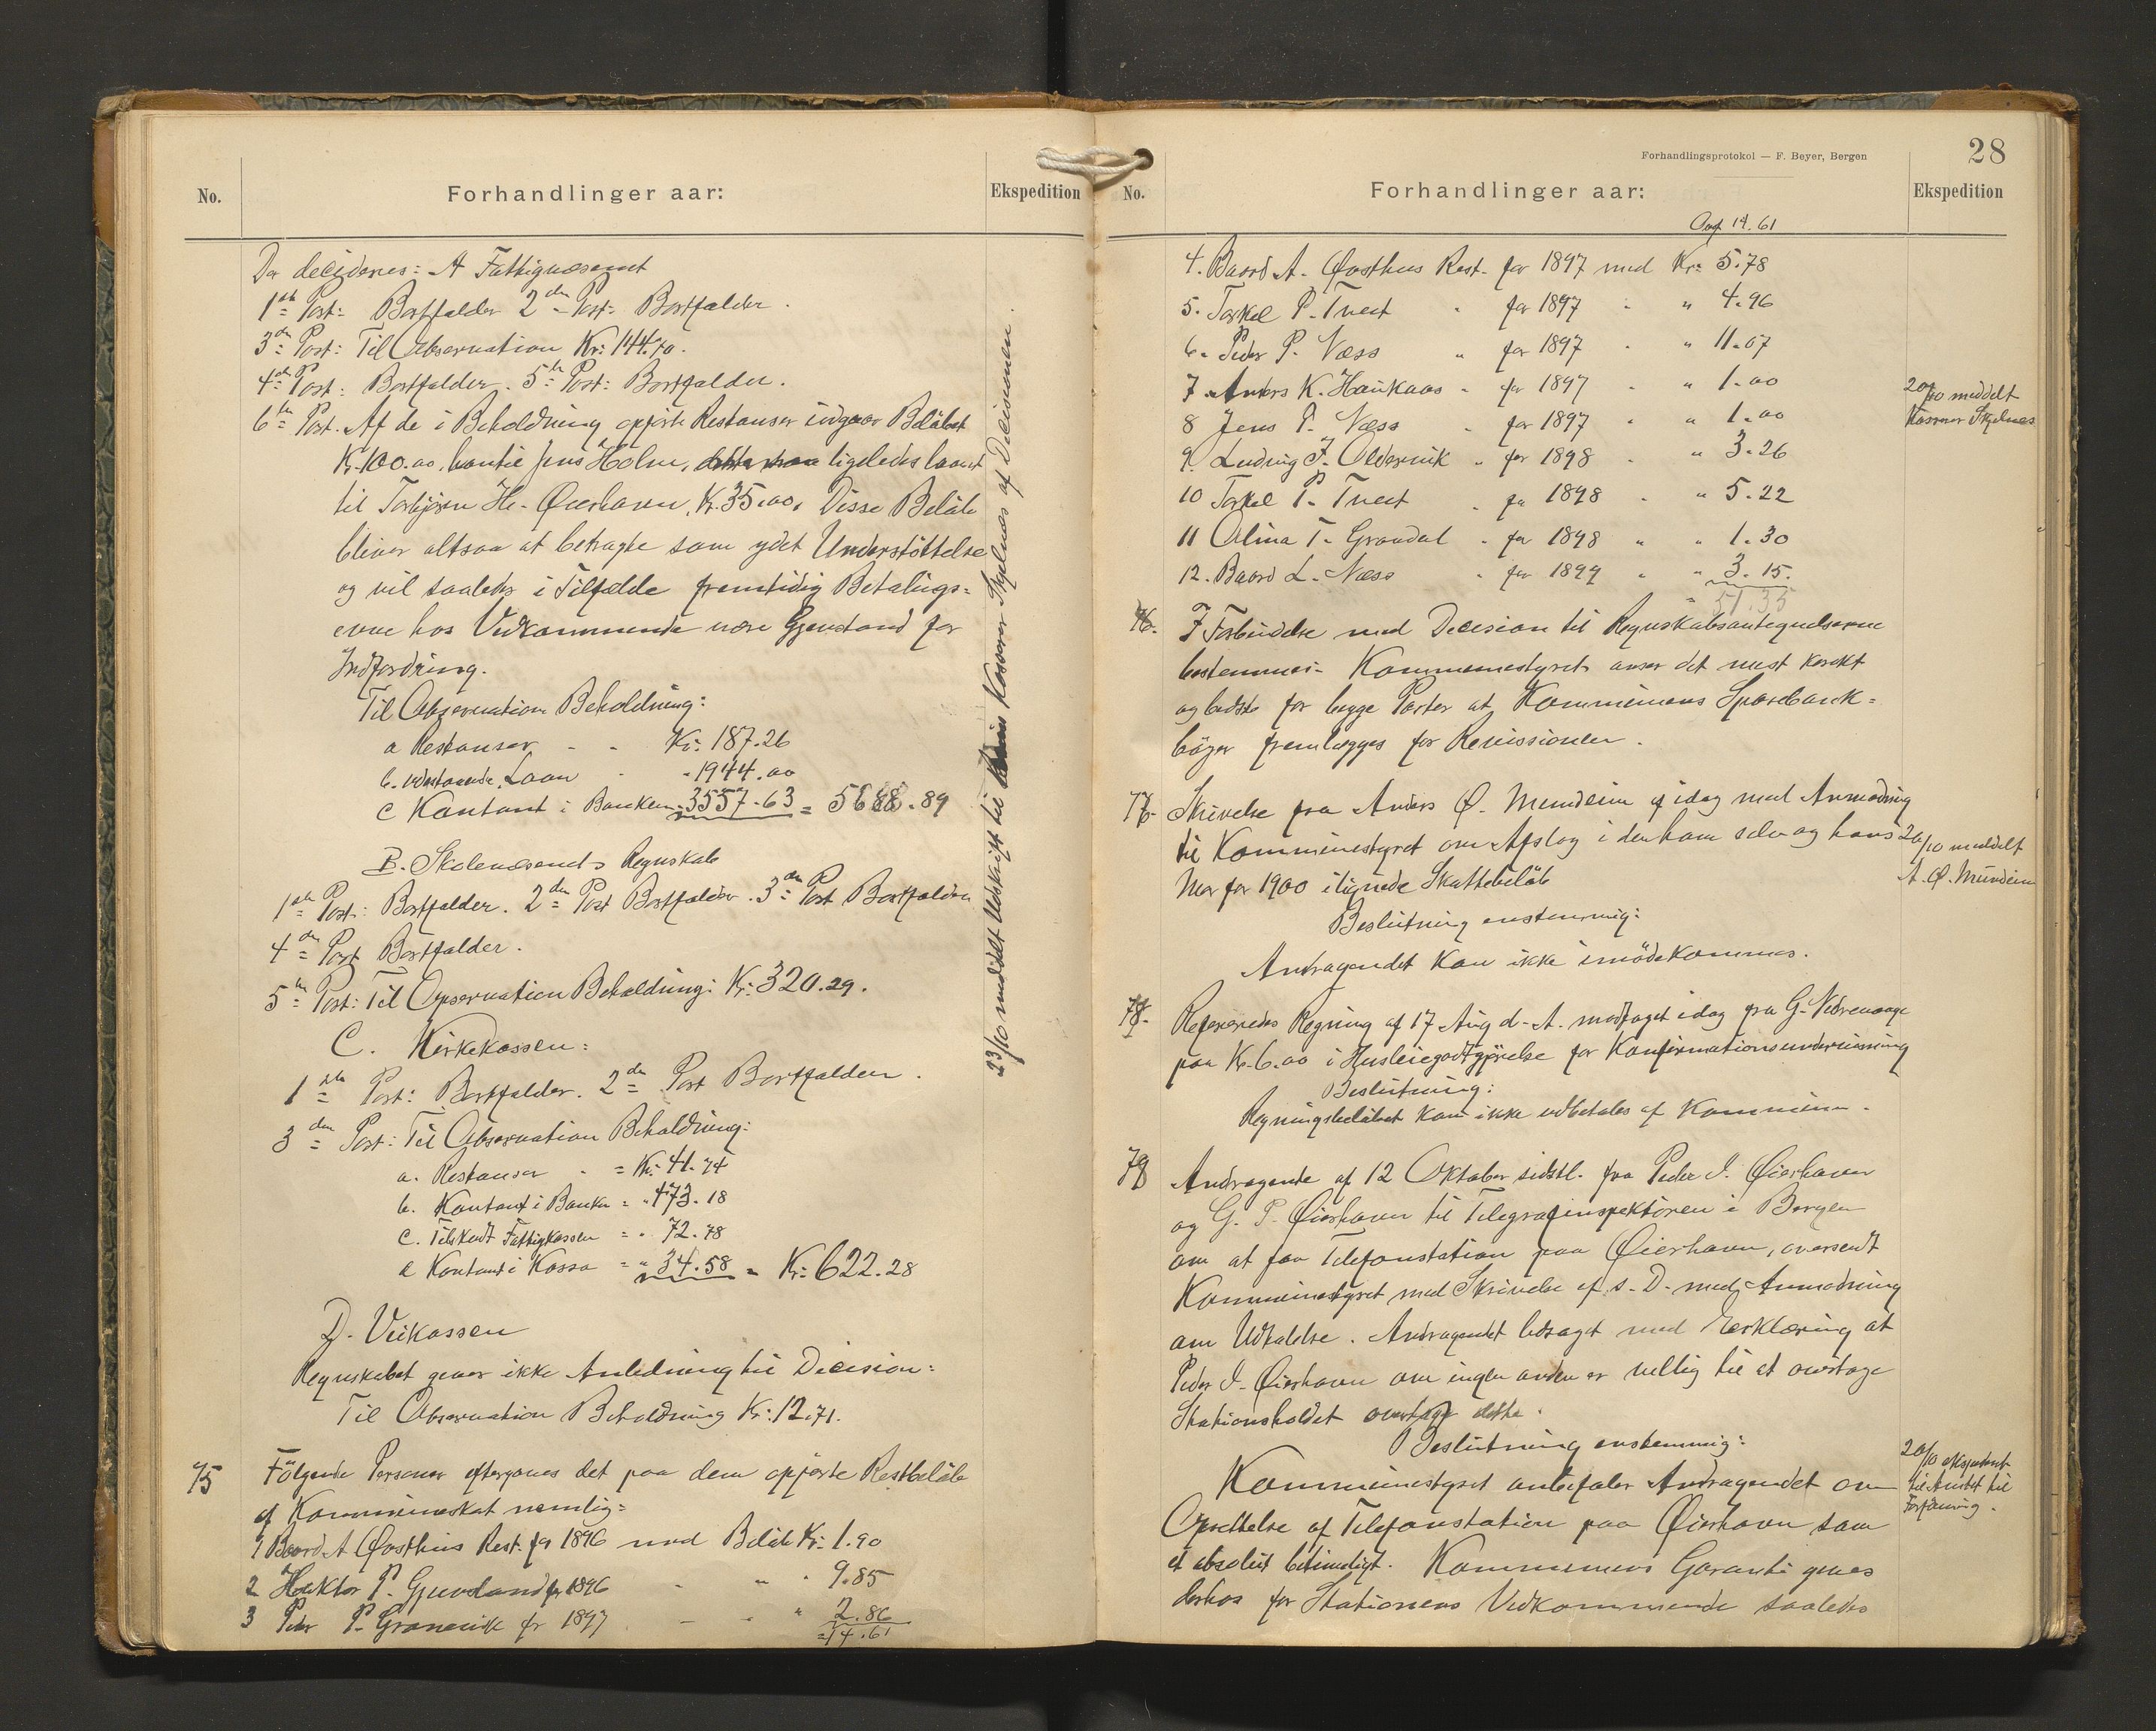 No.
Forhandlinger aar:
Ekspedition
Da decideres: A Fattigvæsenet
1ste Post: Bortfalder 2den Post: Bortfalder.
3die Post: Til Observation Kr: 144.70.
4de Post: Bortfalder. 5te Post: Bortfalder.
6te Post. Af de i Beholdning opførte Restanser indgaar Beløbet
Kr. 100.00, Jens Holm, ligeledes laant
til Torbjørn H. Øierhavn, Kr. 35.00. Disse Beløb
bliver altsaa at betragte som ydet Understøttelse
og vil saaledes i Tilfælde fremtidig Betalings-
evne hos Vedkommende være Gjenstand for
Indfordring.
Til Observation Beholdning:
a Restanser - - Kr: 187.26
b. udestaaende Laan - - 1944.00
c Kontant i Banken - 3557.63 = 5688.89
B. Skolevæsenets Regnskab
1ste Post: Bortfalder. 2den Post Bortfalder. 3die Post Bortfalder
4de Post Bortfalder.
5te Post: Til Observation Beholdning: Kr: 320.29.
C. Kirkekassen:
1ste Post: Bortfalder. 2den Post Bortfalder.
3die Post: Til Observation Beholdning:
a. Restanser - = Kr: 41.74
b. Kontant i Banken = " 473.18
c. Tilskudt Fattigkassen = " 72.78
d Kontant i Kassa = " 34.58 = Kr: 622.28
D. Veikassen
Regnskabet giver ikke Anledning til Decision:
Til Observation Beholdning Kr: 12.71.
75 Følgende Personer eftergives det paa dem opførte Restbeløb
af Kommuneskat nemlig:
1 Baard A Østhus Rest. for 1896 med Beløb Kr: 1.90
2 Hektor P. Gjuvsland for 1896 - " " 9.85
3 Peder P. Granevik for 1897 - - " 2.86
= 14.61
23/10 meddelt Udskrift til Kasserer Skjelnes af Decisionen.
Forhandlingsprotokol — F. Beyer, Bergen
28
No.
Forhandlinger aar:
Ekspedition
Ovf 14.61
4. Baard A. Østhus Rest. for 1897 med Kr: 5.78
5. Torkel P. Tveit " for 1897 - " 4.96
6. Peder P. Næss " for 1897 - " 11.07
7 Anders K. Haukaas " for 1897 - " 1.00
8 Jens P. Næss " for 1897 - " 1.00
9. Ludvig J. Oldervik " for 1898 - " 3.26
10 Torkel P. Tveit " for 1898 - " 5.22
11 Olina T. Grandal " for 1898 " " 1.30
12. Baard L. Næss " for 1899 " " 3.15.
= 51.35
20/10 meddelt
Kasserer Skjelnes
76. I Forbindelse med Decision til Regnskabsantegnelserne
bestemmes: Kommunestyret anser det mest korrekt
og bedste for begge Parter at Kommunens Sparebank-
bøger fremlægges for Revissionen.
77. Skrivelse fra Anders Ø. Mundheim af idag med Anmodning
til Kommunestyret om Afslag i den ham selv og hans
Mor for 1900 ilignede Skattebeløb
Beslutning enstemmig:
Andragendet kan ikke imødekommes.
20/10 meddelt
A. Ø. Mundeim
78. Refereredes Regning af 17 Aug d. A. modtaget idag fra G. Nedrevaage
paa Kr. 6.00 i Husleiegodtgjørelse for Konfirmationsundervisning
Beslutning:
Regningsbeløbet kan ikke udbetales af Kommunen.
79 Andragende af 12 Oktober sidstl. fra Peder I. Øierhavn
og G. P. Øierhavn til Telegrafinspektøren i Bergen
om at faa Telefonstation paa Øierhavn, oversendt
Kommunestyret med Skrivelse af s. D. med Anmodning
om Udtalelse. Andragendet ledsaget med Erklæring at
Peder I. Øierhavn om ingen anden er villig til at overtage
Stationsholdet overtage dette.
Beslutning enstemmig:
Kommunestyret anbefaler Andragendet om
Oprettelse af Telefonstation paa Øierhavn som
et absolut betimeligt. Kommunens Garanti gives
derhos for Stationens Vedkommende saaledes
20/10 ekspedert
til Amtet til
Forføining.